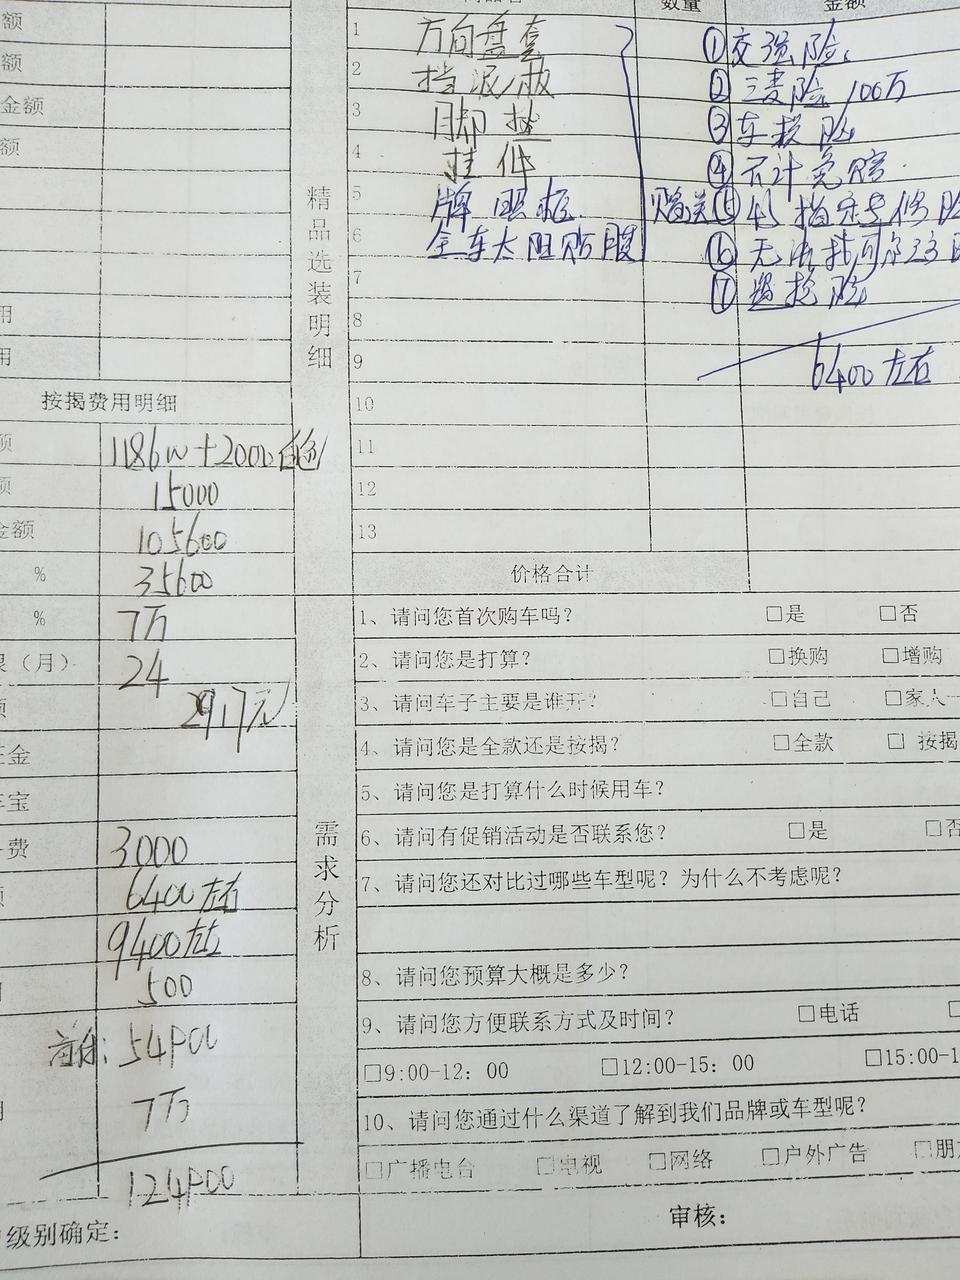 商品名
数量
金额
额
额
金额
额
用
用
精品选装明细
1 方向盘套
2 挡泥板
3 脚垫
4 挂件
5 牌照框
6 全车太阳贴膜
7
8
9
10
11
12
13
赠送
①交强险
②三责险 100万
③车损险
④不计免赔
⑤4S 指定专修险
⑥无法找可
⑦盗抢险
6400左右
价格合计
按揭费用明细
额 118600+2000白色
额 15000
金额 105600
% 35600
% 7万
限（月） 24
额 2917元
证金
车宝
费 3000
额 6400左右
9400左右
用 500
首付：54900
用 7万
124900
级别确定：
需求分析
1、请问您首次购车吗？ □是 □否
2、请问您是打算？ □换购 □增购
3、请问车子主要是谁开？ □自己 □家人
4、请问您是全款还是按揭？ □全款 □按揭
5、请问您是打算什么时候用车？
6、请问有促销活动是否联系您？ □是 □否
7、请问您还对比过哪些车型呢？为什么不考虑呢？
8、请问您预算大概是多少？
9、请问您方便联系方式及时间？ □电话 □
□9:00-12：00 □12:00-15：00 □15:00-1
10、请问您通过什么渠道了解到我们品牌或车型呢？
□广播电台 □电视 □网络 □户外广告 □朋
审核：